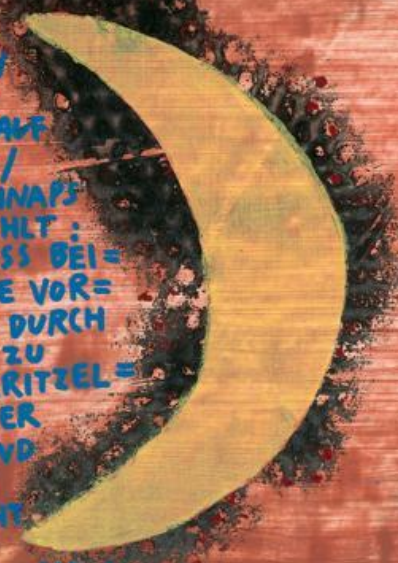 AUF
/
HNAPS
HLT :
SS BEI=
E VOR=
DURCH
ZU
RITZEL=
ER
ND
HT